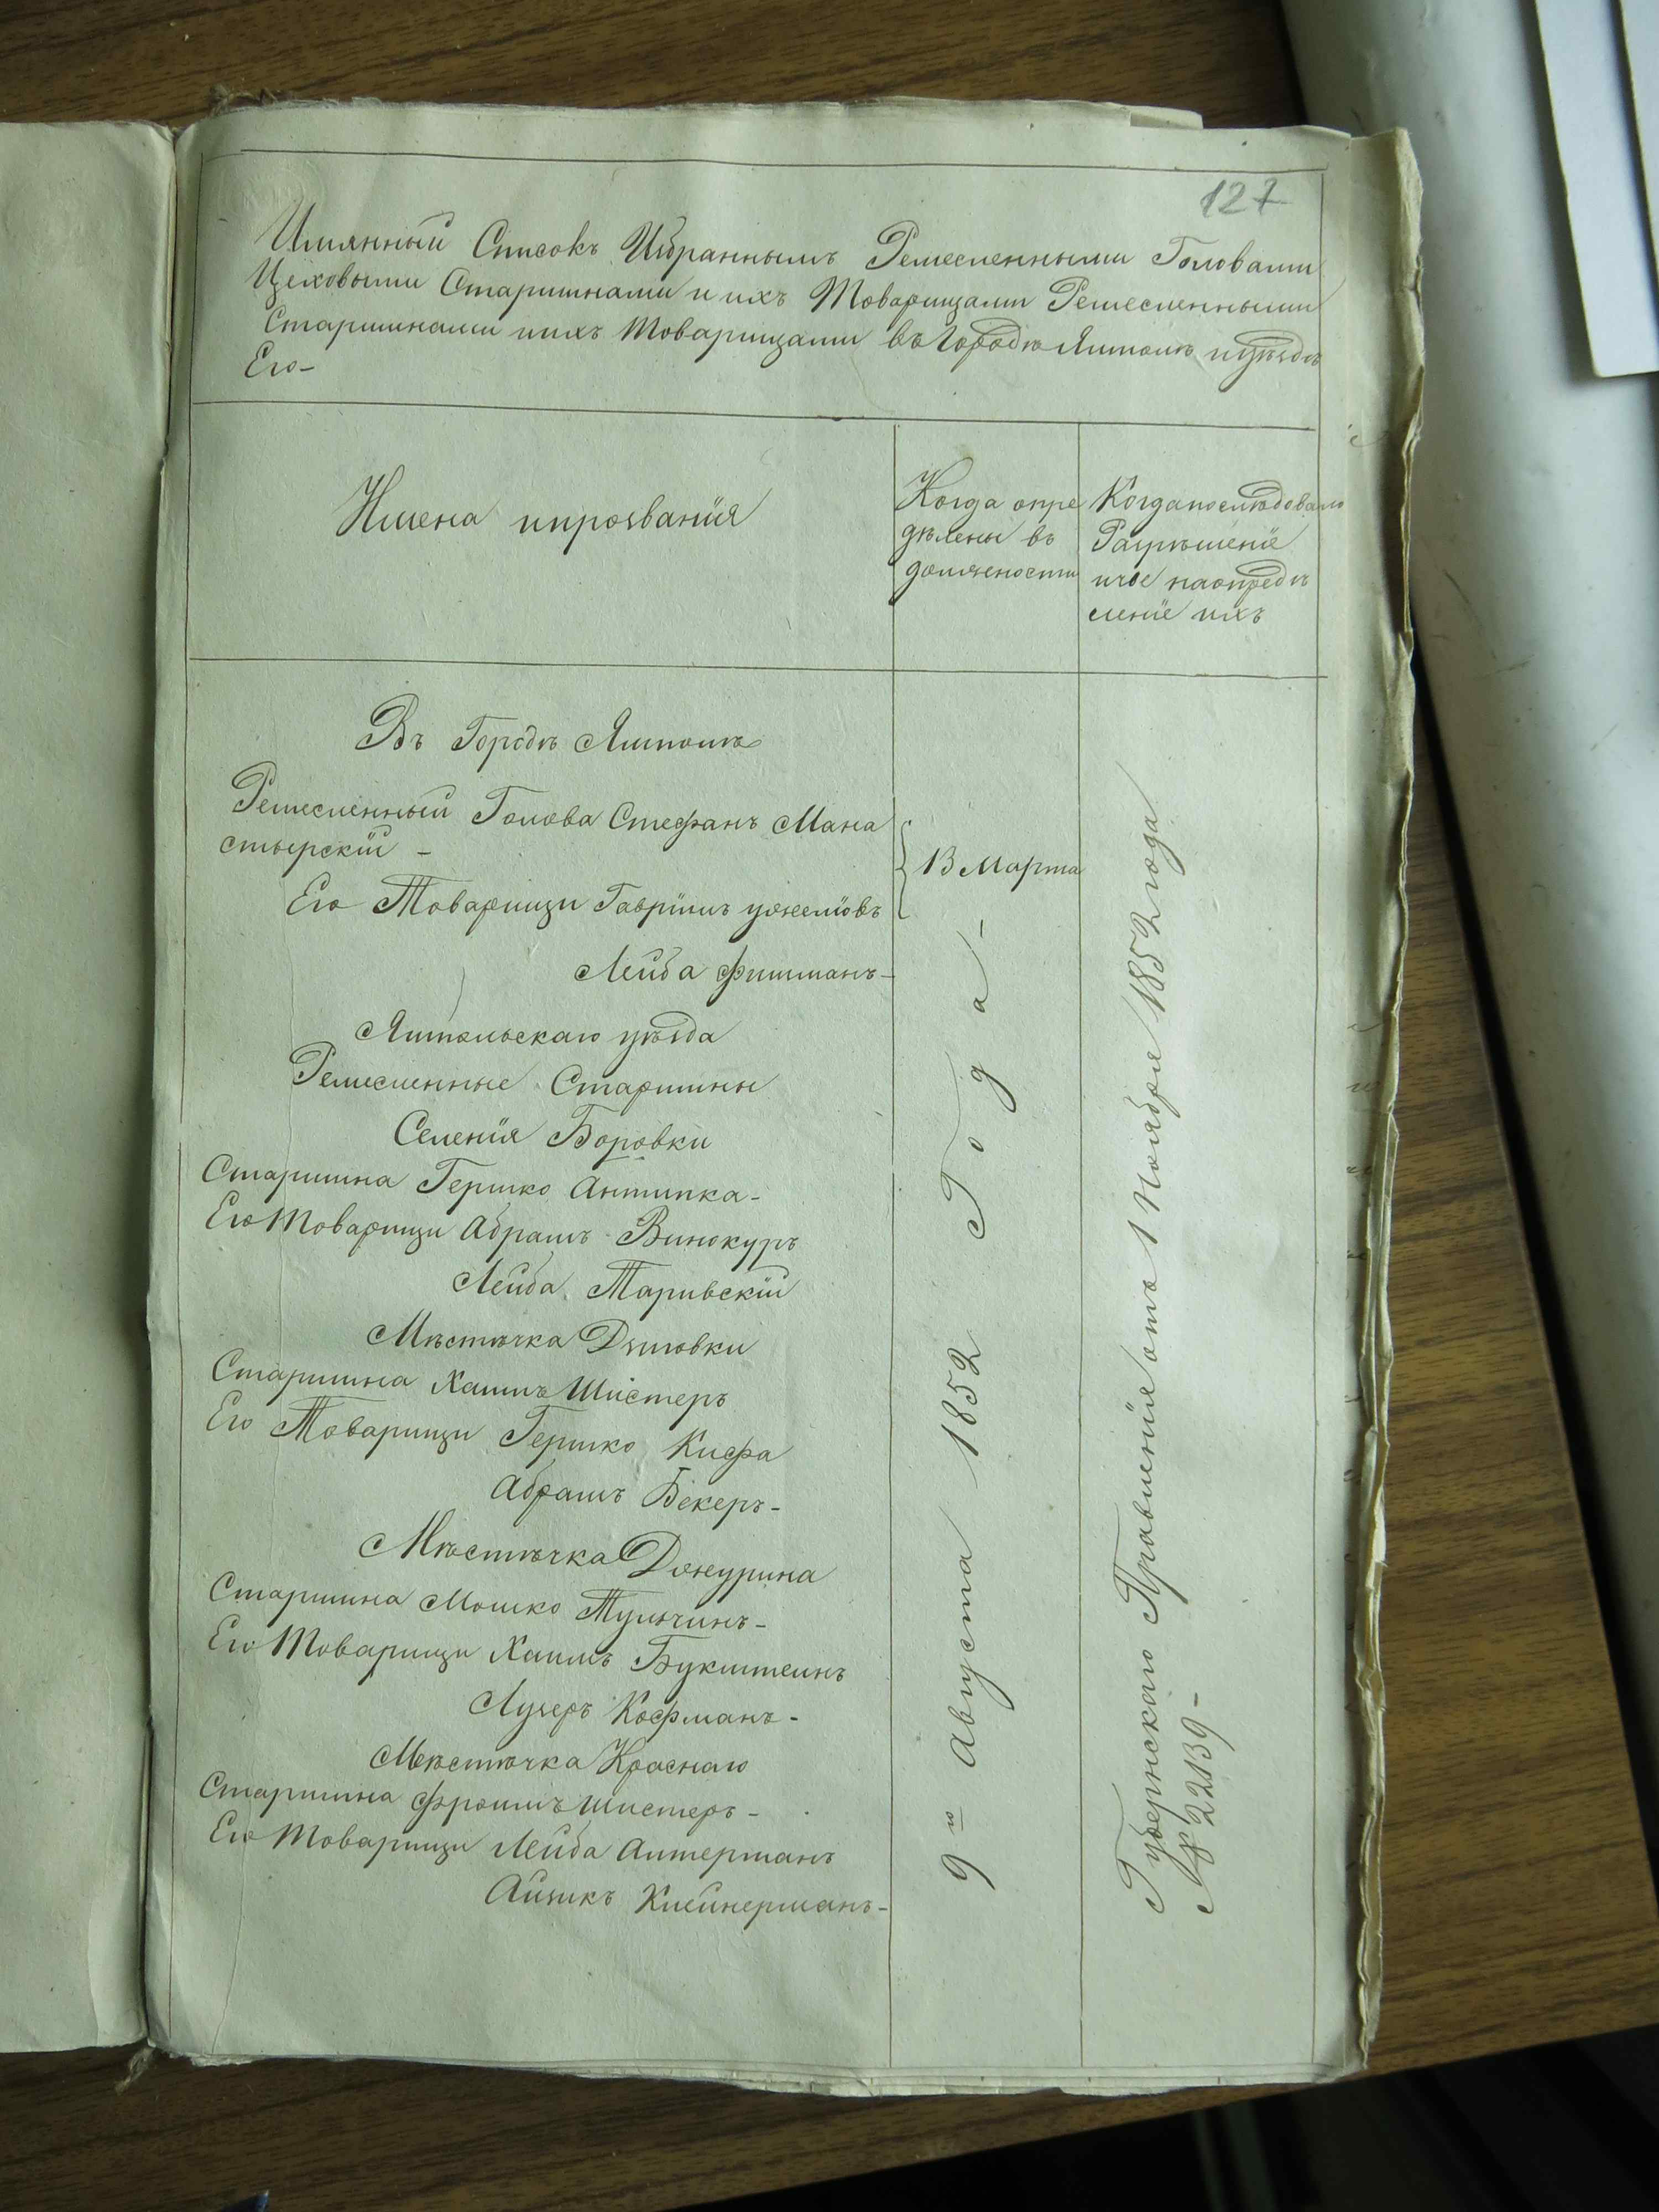 127
Имянный Списокъ Избраннымъ Ремесленными Головами
Цеховыми Старшинами и ихъ Товарищами Ремесленными
Старшинами и ихъ Товарищами въ Городѣ Ямполѣ и уѣздѣ
Его-
Имена и прозванія
Когда опре
дѣлены въ
должности
Когда послѣдовало
Разрѣшеніе
и чье на опредѣ
леніе ихъ
Въ Городѣ Ямполѣ
Ремесленный Голова Стефанъ Мана
стырскій -
Его Товарищи Гаврiилъ
Лейба Фишманъ-
13 Марта
Ямпольскаго уѣзда
Ремесленные Старшины
Селенія Боровки
Старшина Гершко Антипка-
Его Товарищи Абрамъ Винокуръ
Лейба Таривскій
Мѣстѣчка Дзиговки
Старшина Хаимъ Шистеръ
Его Товарищи Гершко Кифа
Абрамъ Бекеръ-
Мѣстѣчка Джурина
Старшина Мошко Тульчинъ-
Его Товарищи Хаимъ Букштеинъ
Лузеръ Кофманъ-
Мѣстѣчка Краснаго
Старшина Фроимъ Шистеръ-
Его Товарищи Лейба Антерманъ
Айзикъ Клейнерманъ-
9го Августа 1852 Года-
Губернскаго Правленія отъ 1 Ноября 1852 года
№ 22139-